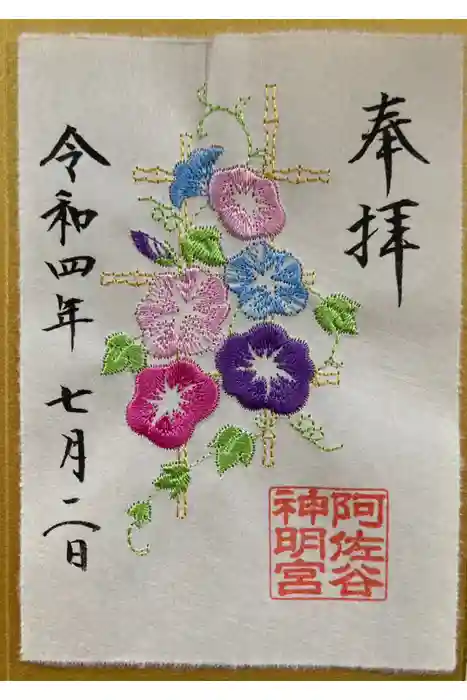 奉拝
阿佐谷
神明宮
令和四年 七月二日